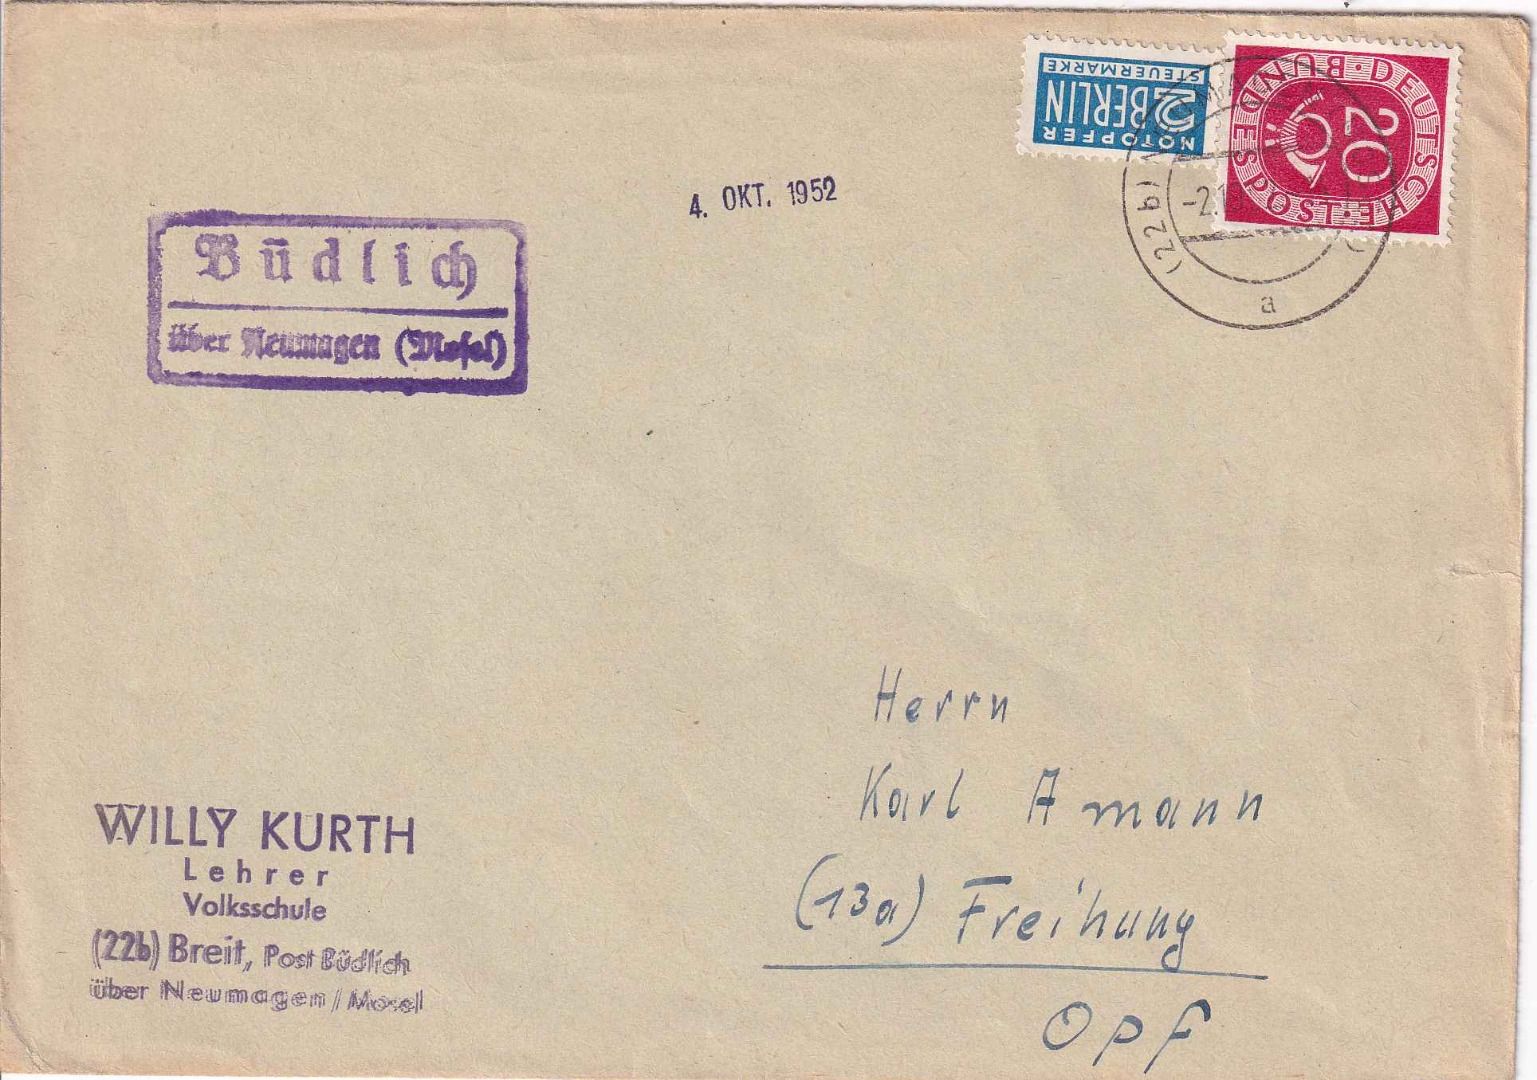 NOTOPFER
2 BERLIN
STEUERMARKE
DEUTSCHE BUNDESPOST
20
(22b)
a
4. OKT. 1952
Büdlich
über Neumagen (Mosel)
Herrn
Karl Amann
(13a) Freihung
Opf
WILLY KURTH
Lehrer
Volksschule
(22b) Breit, Post Büdlich
über Neumagen / Mosel